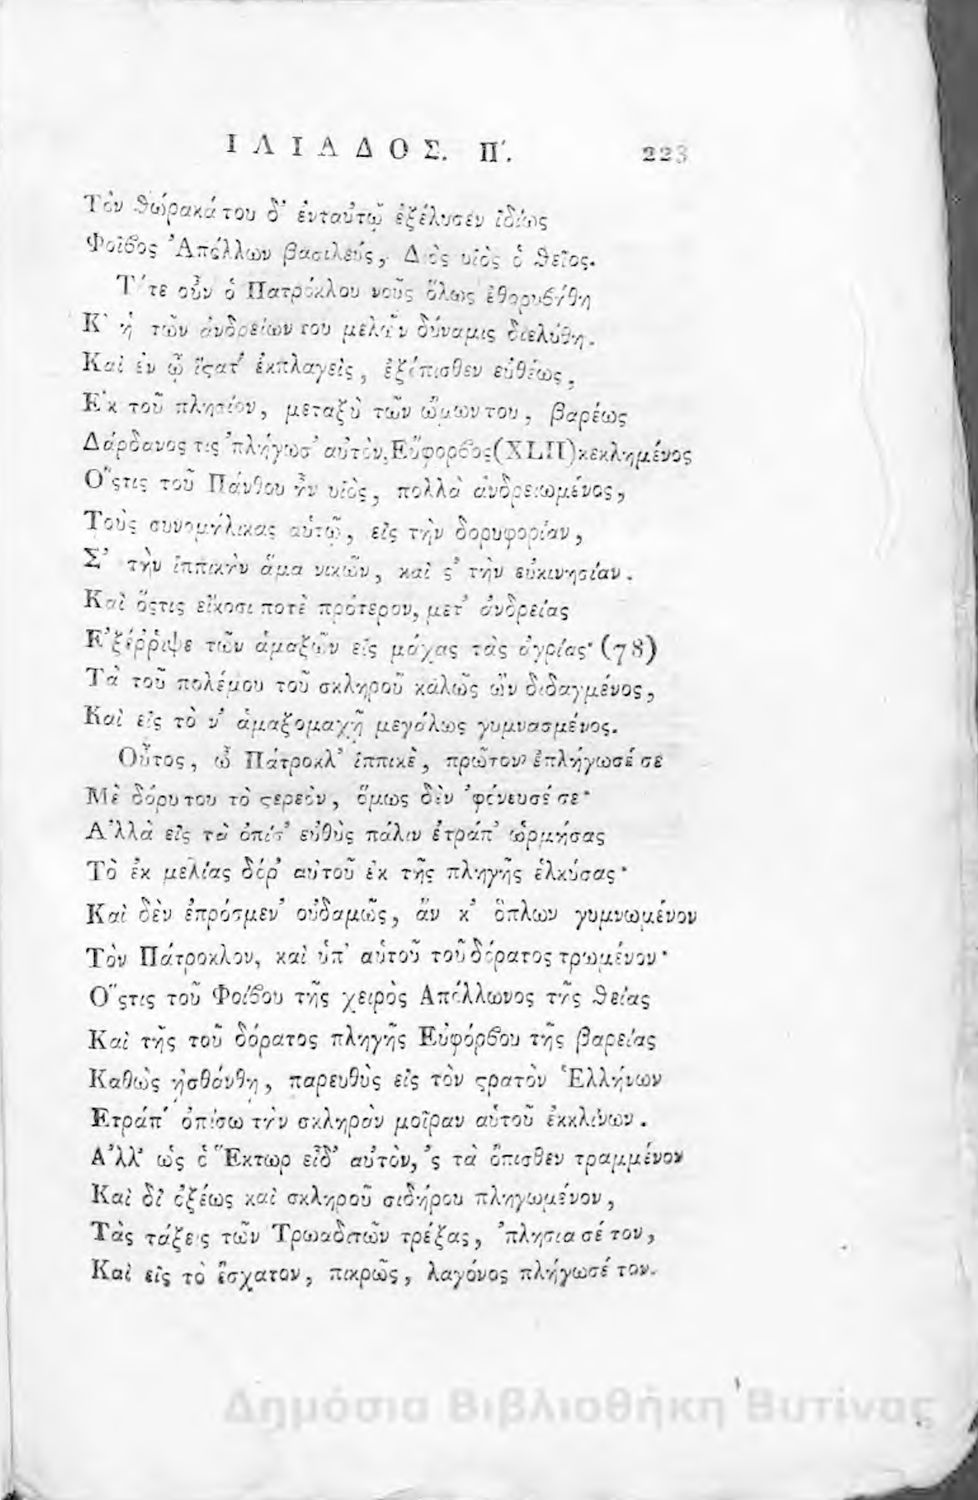 ΙΛΙΑΔΟΣ. Π΄. 223
Τὸν θώρακά του δ' ἐνταὐτῷ ἐξέλυσεν ἰδίως
Φοῖβος Ἀπόλλων βασιλεὺς, Διὸς υἱὸς ὁ θεῖος.
Τότε οὖν ὁ Πατρόκλου νοῦς ὅλως ἐθορυβήθη
Κ' ἡ τῶν ἀνδρείων του μελῶν δύναμις διελύθη.
Καὶ ἐν ᾧ ἵϛατ' ἐκπλαγεὶς, ἐξόπισθεν εὐθέως,
Ἐκ τοῦ πλησίον, μεταξὺ τῶν ὤμων του, βαρέως
Δάρδανος τις 'πλήγωσ' αὐτὸν, Εὔφορβος (XLII) κεκλημένος
Ὅϛτις τοῦ Πάνθου ἦν υἱὸς, πολλὰ ἀνδρειωμένος,
Τοὺς συνομήλικας αὑτῷ, εἰς τὴν δορυφορίαν,
Σ' τὴν ἱππικὴν ἅμα νικῶν, καὶ ϛ' τὴν εὐκινησίαν.
Καὶ ὅϛτις εἴκοσι ποτὲ πρότερον, μετ' ἀνδρείας
Ἐξέρῥιψε τῶν ἁμαξῶν εἰς μάχας τὰς ἀγρίας· (78)
Τὰ τοῦ πολέμου τοῦ σκληροῦ καλῶς ὢν διδαγμένος,
Καὶ εἰς τὸ ν' ἁμαξομαχῇ μεγάλως γυμνασμένος.
Οὗτος, ὦ Πάτροκλ' ἱππικὲ, πρῶτον ἐπλήγωσέ σε
Μὲ δόρυ του τὸ ϛερεὸν, ὅμως δὲν 'φόνευσέ σε·
Ἀλλὰ εἰς τὰ ὀπίσ' εὐθὺς πάλιν ἐτράπ' ὡρμήσας
Τὸ ἐκ μελίας δόρ' αὑτοῦ ἐκ τῆς πληγῆς ἑλκύσας·
Καὶ δὲν ἐπρόσμεν' οὐδαμῶς, ἂν κ' ὅπλων γυμνωμένον
Τὸν Πάτροκλον, καὶ ὑπ' αὑτοῦ τοῦ δόρατος τρωμένον·
Ὅϛτις τοῦ Φοίβου τῆς χειρὸς Ἀπόλλωνος τῆς θείας
Καὶ τῆς τοῦ δόρατος πληγῆς Εὐφόρβου τῆς βαρείας
Καθὼς ᾐσθάνθη, παρευθὺς εἰς τὸν ϛρατὸν Ἑλλήνων
Ἐτράπ' ὀπίσω τὴν σκληρὰν μοῖραν αὑτοῦ ἐκκλίνων.
Ἀλλ' ὡς ὁ Ἕκτωρ εἶδ' αὐτὸν, 'ς τὰ ὄπισθεν τραμμένον
Καὶ δι' ὀξέως καὶ σκληροῦ σιδήρου πληγωμένον,
Τὰς τάξεις τῶν Τρωαδιτῶν τρέξας, 'πλησιασέ τον,
Καὶ εἰς τὸ ἔσχατον, πικρῶς, λαγόνος πλήγωσέ τον.
Δημόσια Βιβλιοθήκη Βυτίνας